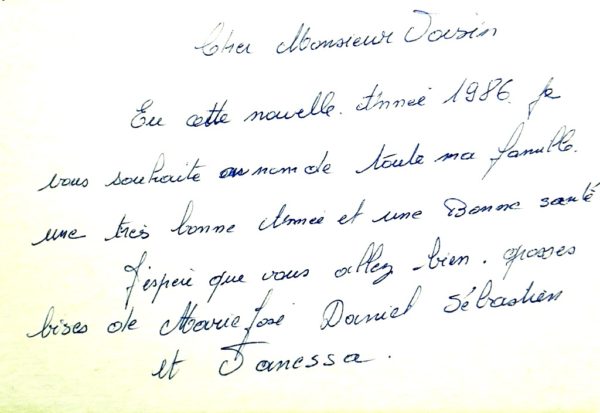 Cher Monsieur Voisin
En cette nouvelle Année 1986. je
vous souhaite au nom de toute ma famille.
une très bonne Année et une Bonne santé
J'espère que vous allez bien. grosses
bises de Marie José Daniel Sébastien
et Vanessa.